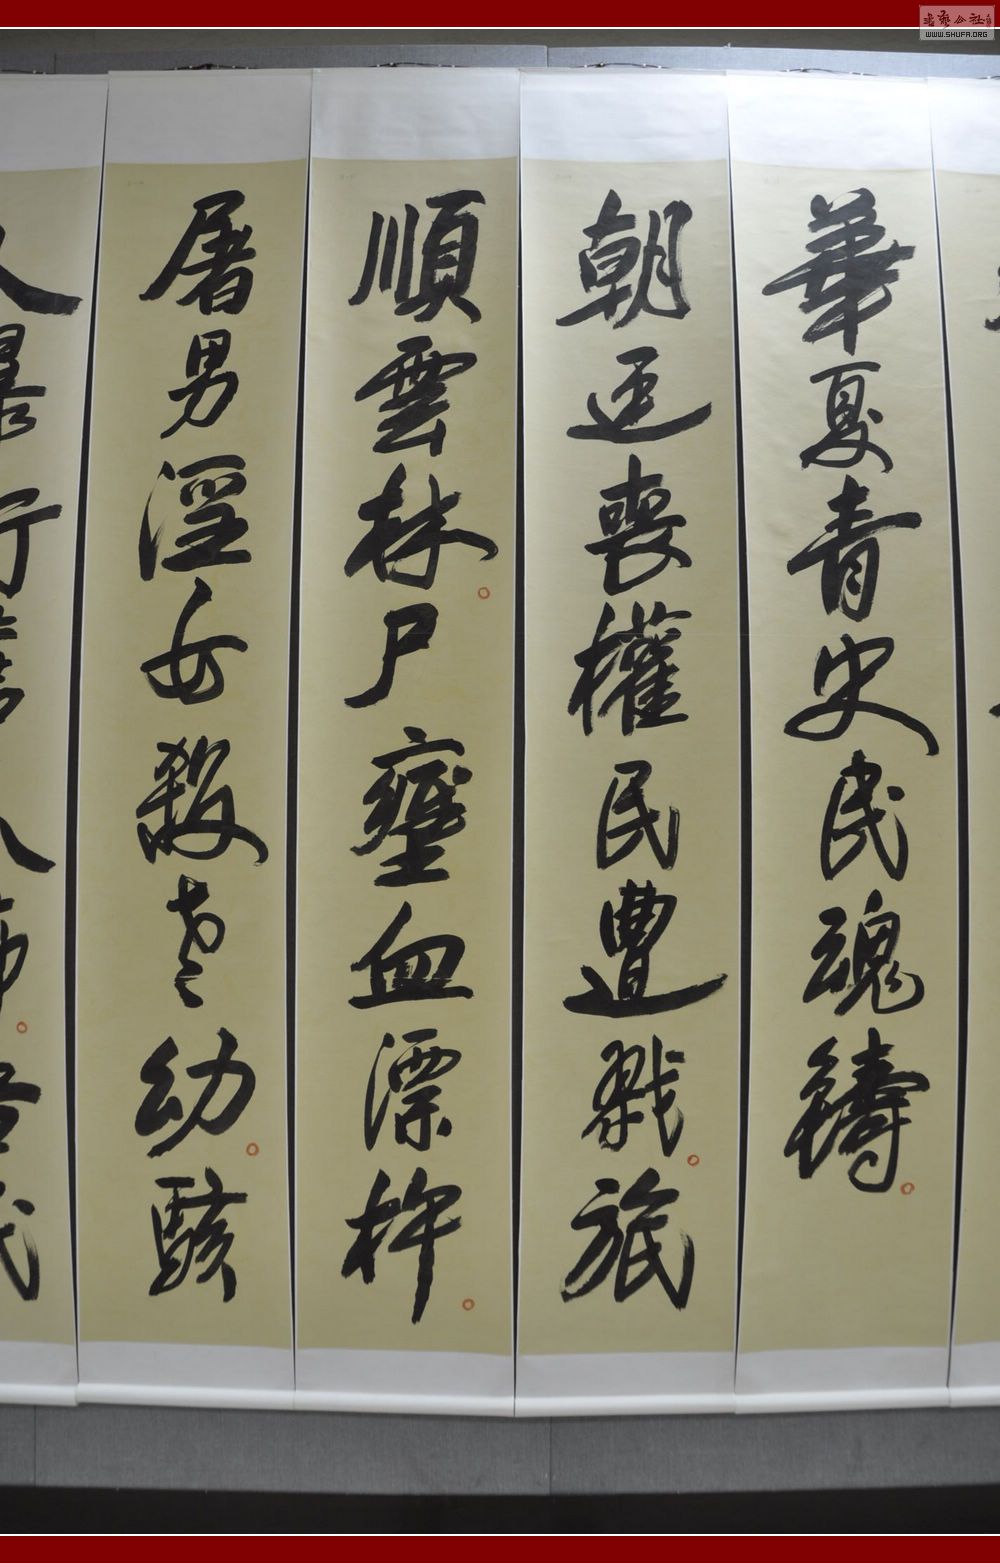 華夏青史民魂鑄
朝廷喪權民遭戮旅
順雲林尸壅血漂杵
屠男淫女殺老幼駭
人
行
人
WWW.SHUFA.ORG